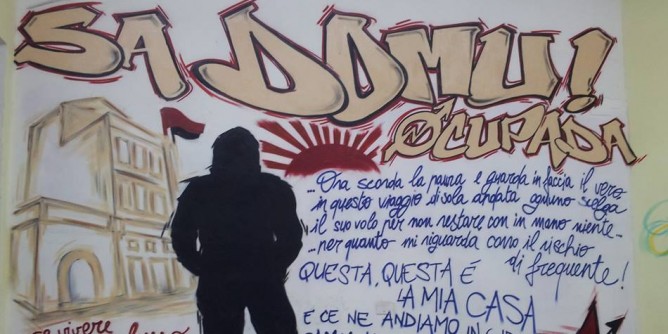 SA DOMU!
OCUPADA
...Ora scorda la paura e guarda in faccia il vero
in questo viaggio di sola andata ognuno scelga
il suo volo per non restare con in mano niente...
...per quanto mi riguarda corro il rischio
di frequente!
QUESTA, QUESTA É
LA MIA CASA
E CE NE ANDIAMO IN
vivere